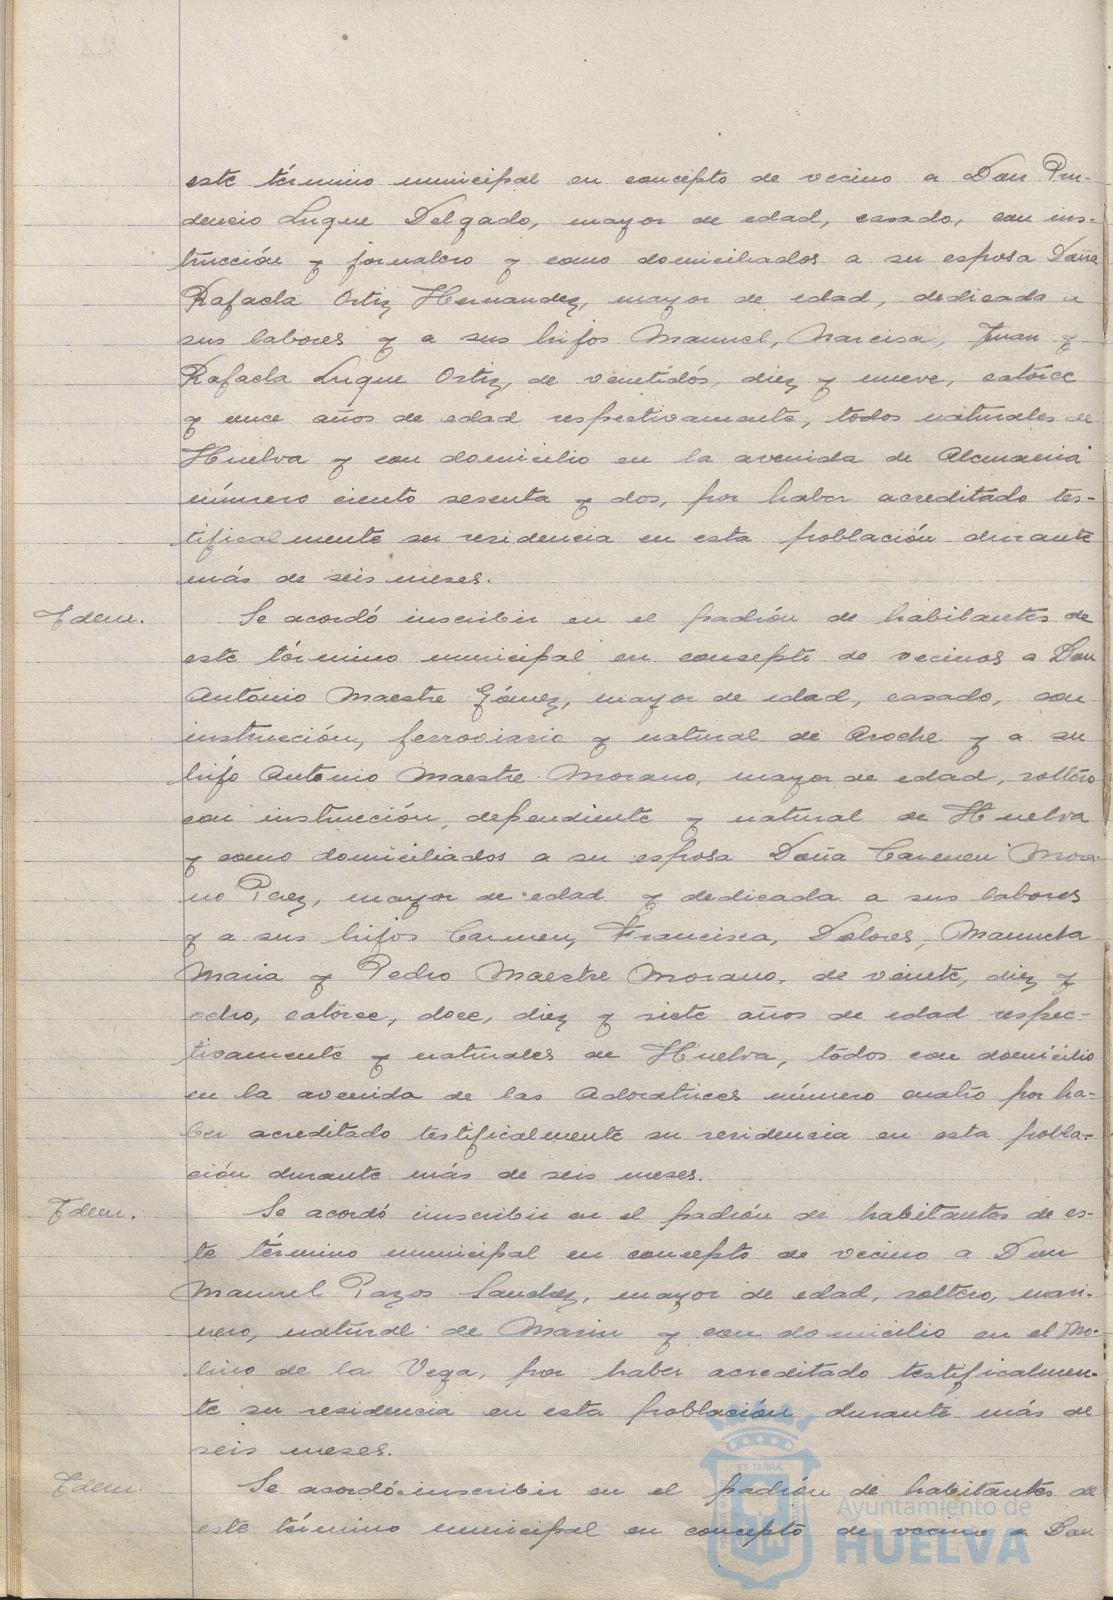 este término municipal en concepto de vecino a Don Pru-
dencio Luque Delgado, mayor de edad, casado, con ins-
trucción y jornalero y como domiciliados a su esposa Doña
Rafaela Ortiz Hernandez, mayor de edad, dedicada a
sus labores y a sus hijos Manuel, Narcisa, Juan y
Rafaela Luque Ortiz, de veintidós, diez y nueve, catorce
y once años de edad respectivamente, todos naturales de
Huelva y con domicilio en la avenida de Alemania
número ciento sesenta y dos, por haber acreditado tes-
tificalmente su residencia en esta población durante
más de seis meses.
Idem. Se acordó inscribir en el padrón de habitantes de
este término municipal en concepto de vecinos a Don
Antonio Maestre Gómez, mayor de edad, casado, con
instrucción, ferroviario y natural de Aroche y a su
hijo Antonio Maestre Morano, mayor de edad, soltero
con instrucción, dependiente y natural de Huelva
y como domiciliados a su esposa Doña Carmen Mora-
no Perez, mayor de edad y dedicada a sus labores
y a sus hijos Carmen, Francisca, Dolores, Manuela
Maria y Pedro Maestre Morano, de veinte, diez y
ocho, catorce, doce, diez y siete años de edad respec-
tivamente y naturales de Huelva, todos con domicilio
en la avenida de las Adoratrices número cuatro por ha-
ber acreditado testificalmente su residencia en esta pobla-
ción durante más de seis meses.
Idem. Se acordó inscribir en el padrón de habitantes de es-
te término municipal en concepto de vecino a Don
Manuel Pazos Sanchez, mayor de edad, soltero, mari-
nero, natural de Marin y con domicilio en el Mo-
lino de la Vega, por haber acreditado testificalmen-
te su residencia en esta población durante más de
seis meses.
Idem. Se acordó inscribir en el padrón de habitantes de
este término municipal en concepto de vecino a Don
ET TERRÆ
Ayuntamiento de
HUELVA